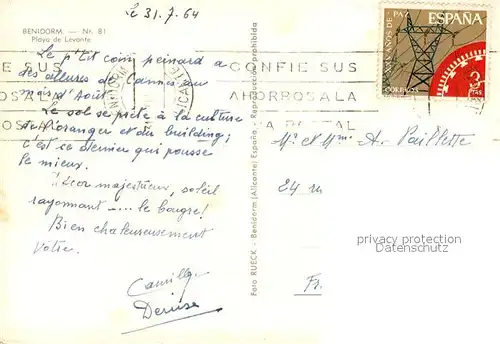 Le 31.7.64
BENIDORM. — Nr. 81
Playa de Levante
Le p'tit coin peinard a
des allures de Cannes au
mois d'Août.
Le sol se prête à la culture
de l'oranger et du building;
c'est ce dernier qui pousse
le mieux.
Décor majestueux, soleil
rayonnant .... le bougre!
Bien chaleureusement
vôtre.
Camille
Denise
Foto RUECK - Benidorm (Alicante) España - Reproducción prohibida
AÑOS DE PAZ
ESPAÑA
CORREOS
3
PTAS
CONFIE SUS
AHORROS A LA
POSTAL
Mr et Mme A. Paillette
24 r
Fr
privacy protection
Datenschutz